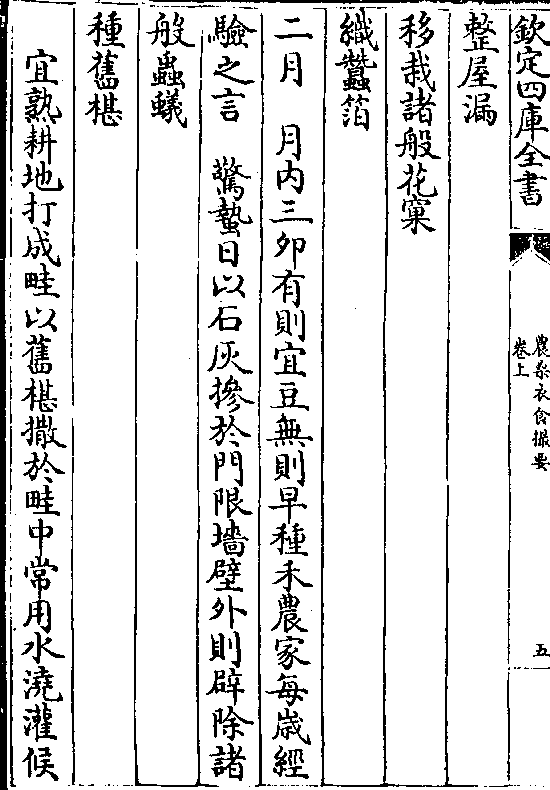 欽定四庫全書
農桑衣食撮要
卷上
五
整屋漏
移栽諸般花窠
織蠶箔
二月　月内三卯有則宜豆無則早種禾農家每歳經
驗之言　驚蟄日以石灰摻於門限墻壁外則辟除諸
般蟲蟻
種舊椹
宜熟耕地打成畦以舊椹撒於畦中常用水澆灌候